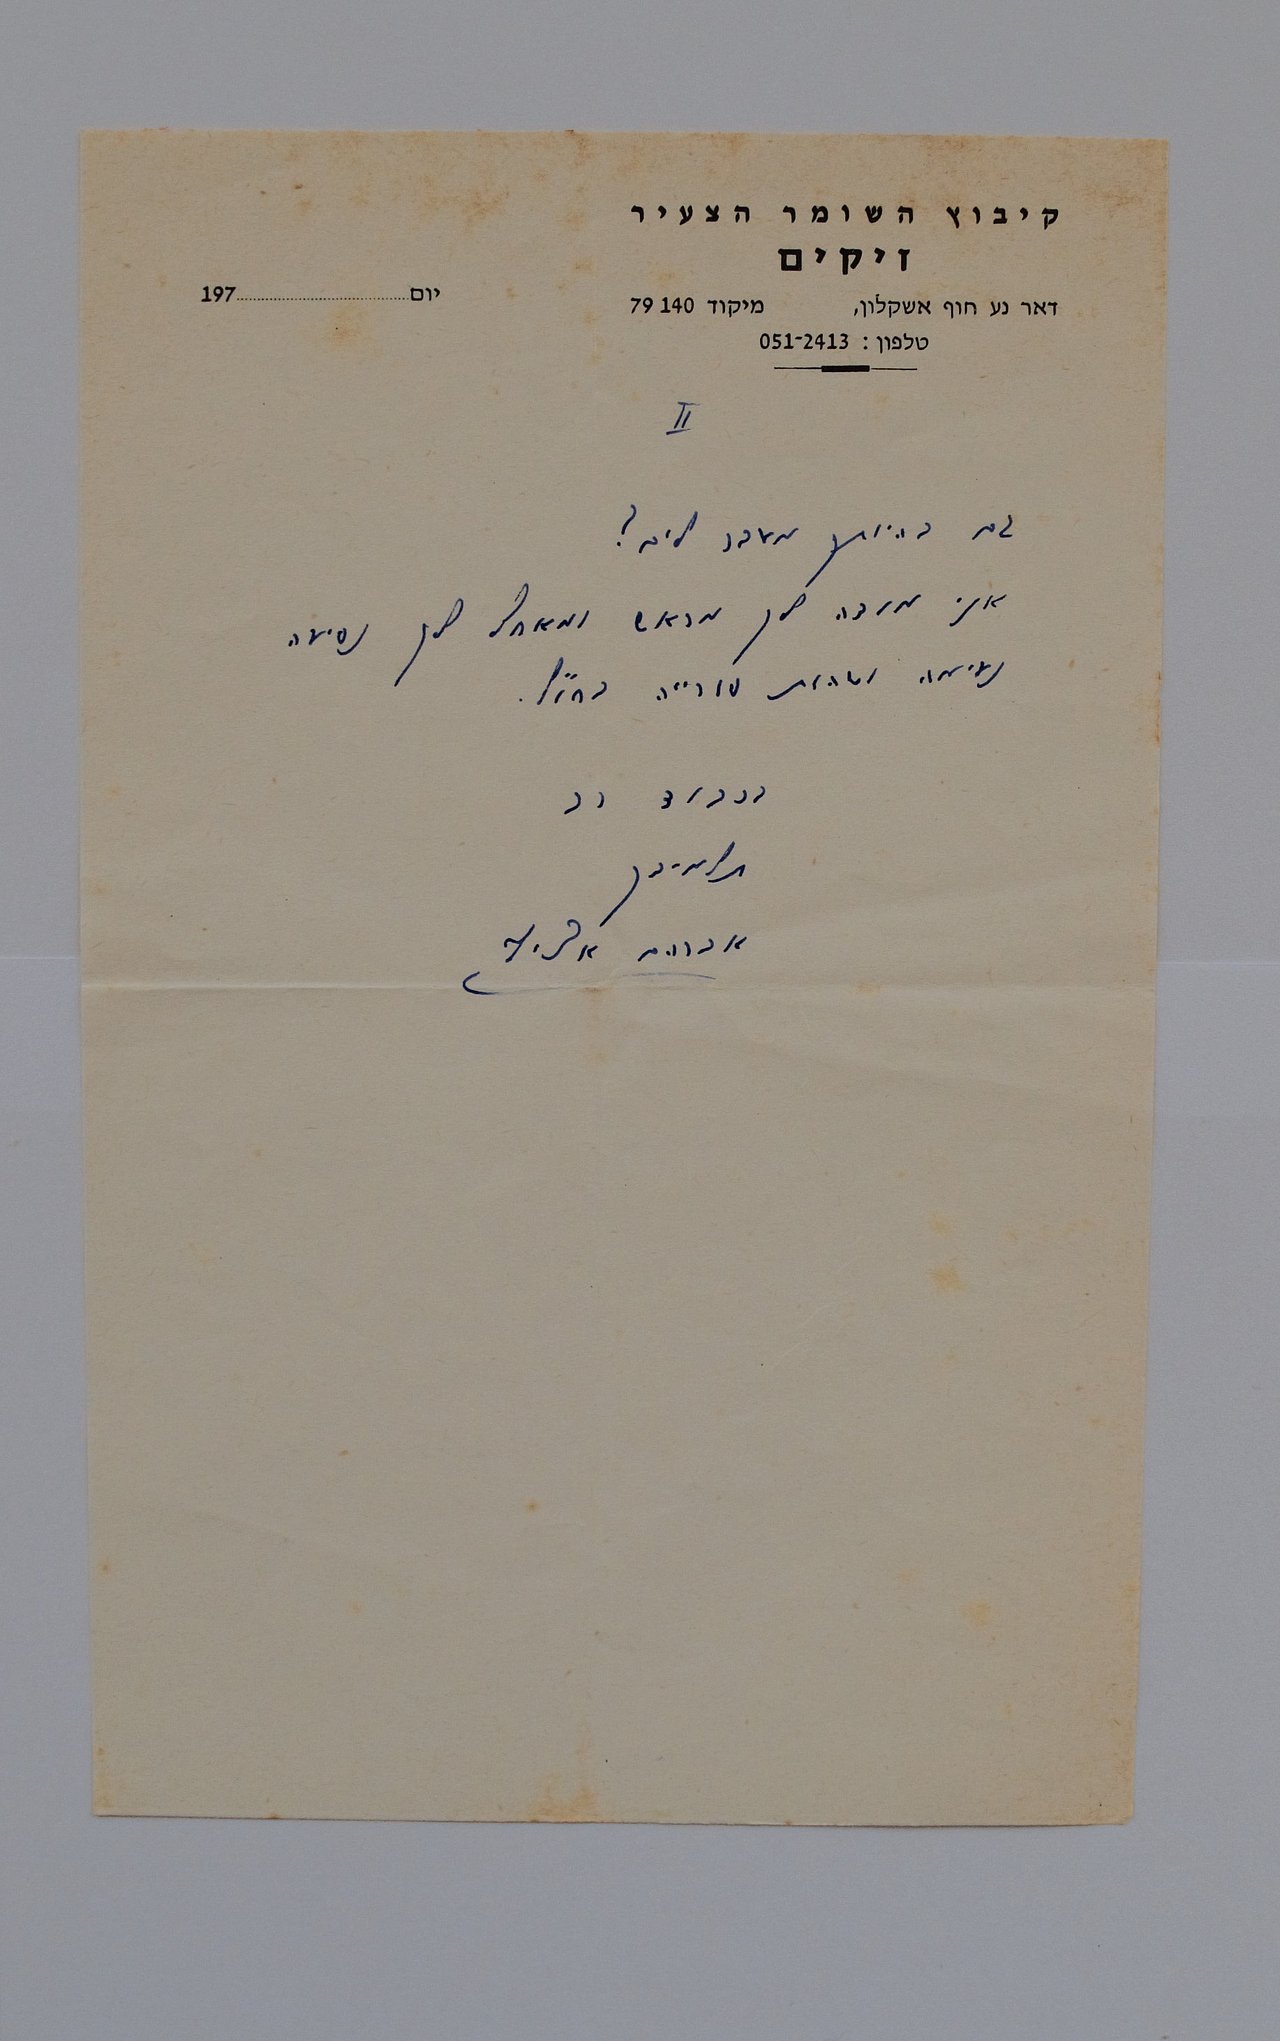 קיבוץ השומר הצעיר
זיקים
דאר נע חוף אשקלון, מיקוד 79140
טלפון: 051-2413
יום 197
II
גם בהיותך מעבר לים?
אני מודה לך מראש ומאחל לך נסיעה
נעימה ושהות פורייה בחו"ל.
בכבוד רב
תלמידך
אברהם